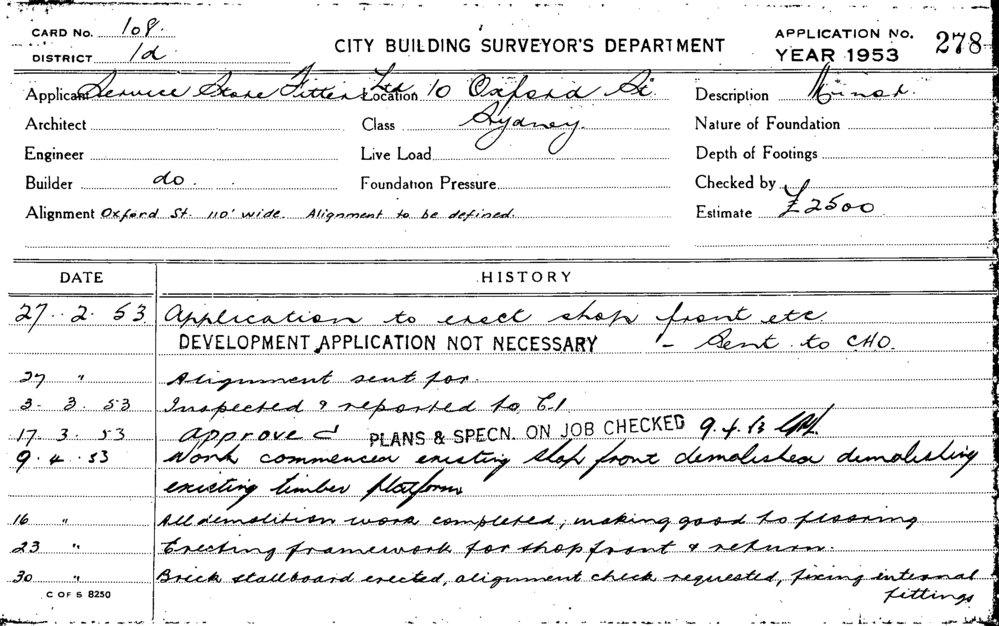 CARD No. 108.
DISTRICT 1d.
CITY BUILDING SURVEYOR'S DEPARTMENT
APPLICATION No. 278
YEAR 1953
Applicant Service Store Fitters Ltd Location 10 Oxford St. Description Minor.
Architect Class Sydney. Nature of Foundation
Engineer Live Load Depth of Footings
Builder do. Foundation Pressure Checked by
Alignment Oxford St. 110' wide. Alignment to be defined. Estimate £2500
DATE HISTORY
27. 2. 53 Application to erect shop front etc
DEVELOPMENT APPLICATION NOT NECESSARY - Sent to CHO.
27 " Alignment sent for.
3. 3. 53 Inspected & reported to C.I.
17. 3. 53 Approved PLANS & SPECN. ON JOB CHECKED 9.4.53
9. 4. 53 Work commenced existing shop front demolished demolishing
existing timber platform
16 " All demolition work completed, making good to flooring
23 " Erecting framework for shopfront & return.
30 " Brick stallboard erected, alignment check requested, fixing internal
fittings
C OF S 8250